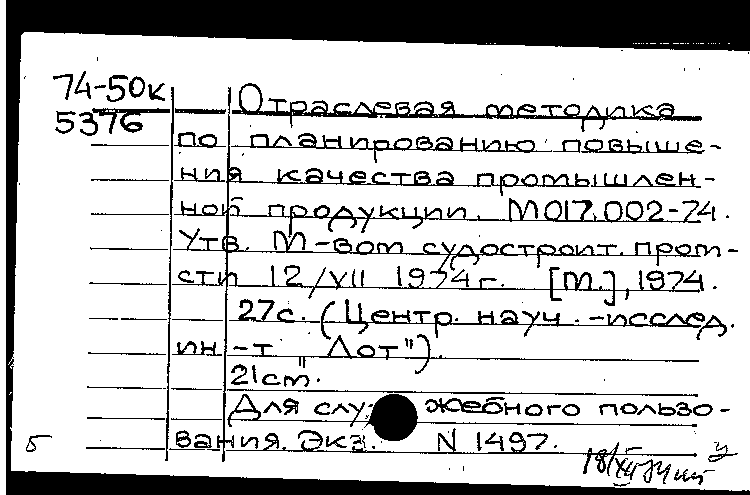 74-50к
5376
Отраслевая методика
по планированию повыше-
ния качества промышлен-
ной продукции. М017.002-74.
Утв. М-вом судостроит. пром-
сти 12/VII 1974г. [М.], 1974.
27с. (Центр. науч.-исслед.
ин-т "Лот").
21см.
Для служебного пользо-
вания. Экз. N 1497.
5
18/XII